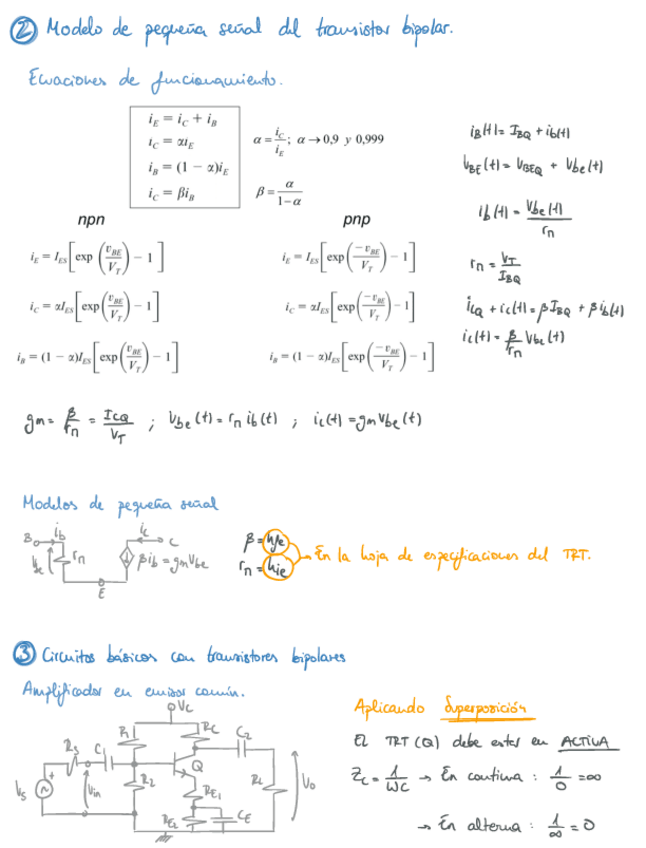 ② Modelo de pequeña señal del transistor bipolar.
Ecuaciones de funcionamiento.
i_E = i_C + i_B
i_C = αi_E
i_B = (1 − α)i_E
i_C = βi_B
α = i_C / i_E ; α → 0,9 y 0,999
β = α / 1−α
i_B(t) = I_BQ + i_b(t)
V_BE(t) = V_BEQ + V_be(t)
i_b(t) = V_be(t) / r_π
r_π = V_T / I_BQ
i_CQ + i_c(t) = βI_BQ + βi_b(t)
i_c(t) = β / r_π V_be(t)
npn
i_E = I_ES [exp (v_BE / V_T) − 1]
i_C = αI_ES [exp (v_BE / V_T) − 1]
i_B = (1 − α)I_ES [exp (v_BE / V_T) − 1]
pnp
i_E = I_ES [exp (−v_BE / V_T) − 1]
i_C = αI_ES [exp (−v_BE / V_T) − 1]
i_B = (1 − α)I_ES [exp (−v_BE / V_T) − 1]
gm = β / r_π = I_CQ / V_T ; V_be(t) = r_π i_b(t) ; i_c(t) = gm V_be(t)
Modelos de pequeña señal
B i_b
V_be r_π
E
i_c C
βi_b = gm V_be
β = hfe
r_π = hie
En la hoja de especificaciones del TRT.
③ Circuitos básicos con transistores bipolares
Amplificador en emisor común.
V_C
R_S C_1 R_1 R_C C_2
V_S V_in R_2 Q R_L V_o
R_E1
R_E2 C_E
Aplicando Superposición
El TRT (Q) debe estar en ACTIVA
Z_C = 1 / WC → En continua : 1 / 0 = ∞
→ En alterna : 1 / ∞ = 0